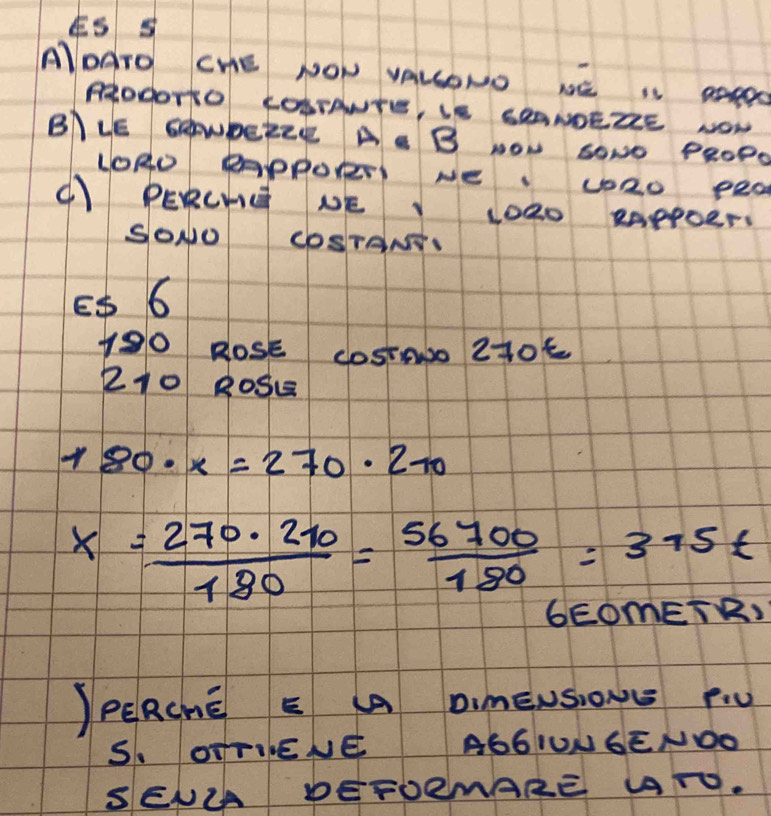 ES 5
A) DATO CHE NON VALGONO NÈ IL RAPPO
PRODOTTO COSTANTE, LE GRANDEZZE NON
B) LE GRANDEZZE A e B NON SONO PROPO
LORO RAPPORTI NE I LORO PRO
C) PERCHÉ NE I LORO RAPPORTI
SONO COSTANTI
ES 6
180 ROSE COSTANO 270€
210 ROSE
180 · x = 270 · 210
x = 270 · 210 / 180 = 56700 / 180 = 315 €
GEOMETRI
) PERCHÉ E LA DIMENSIONE PIU
SI OTTIENE AGGIUNGENDO
SENZA DEFORMARE LATO.